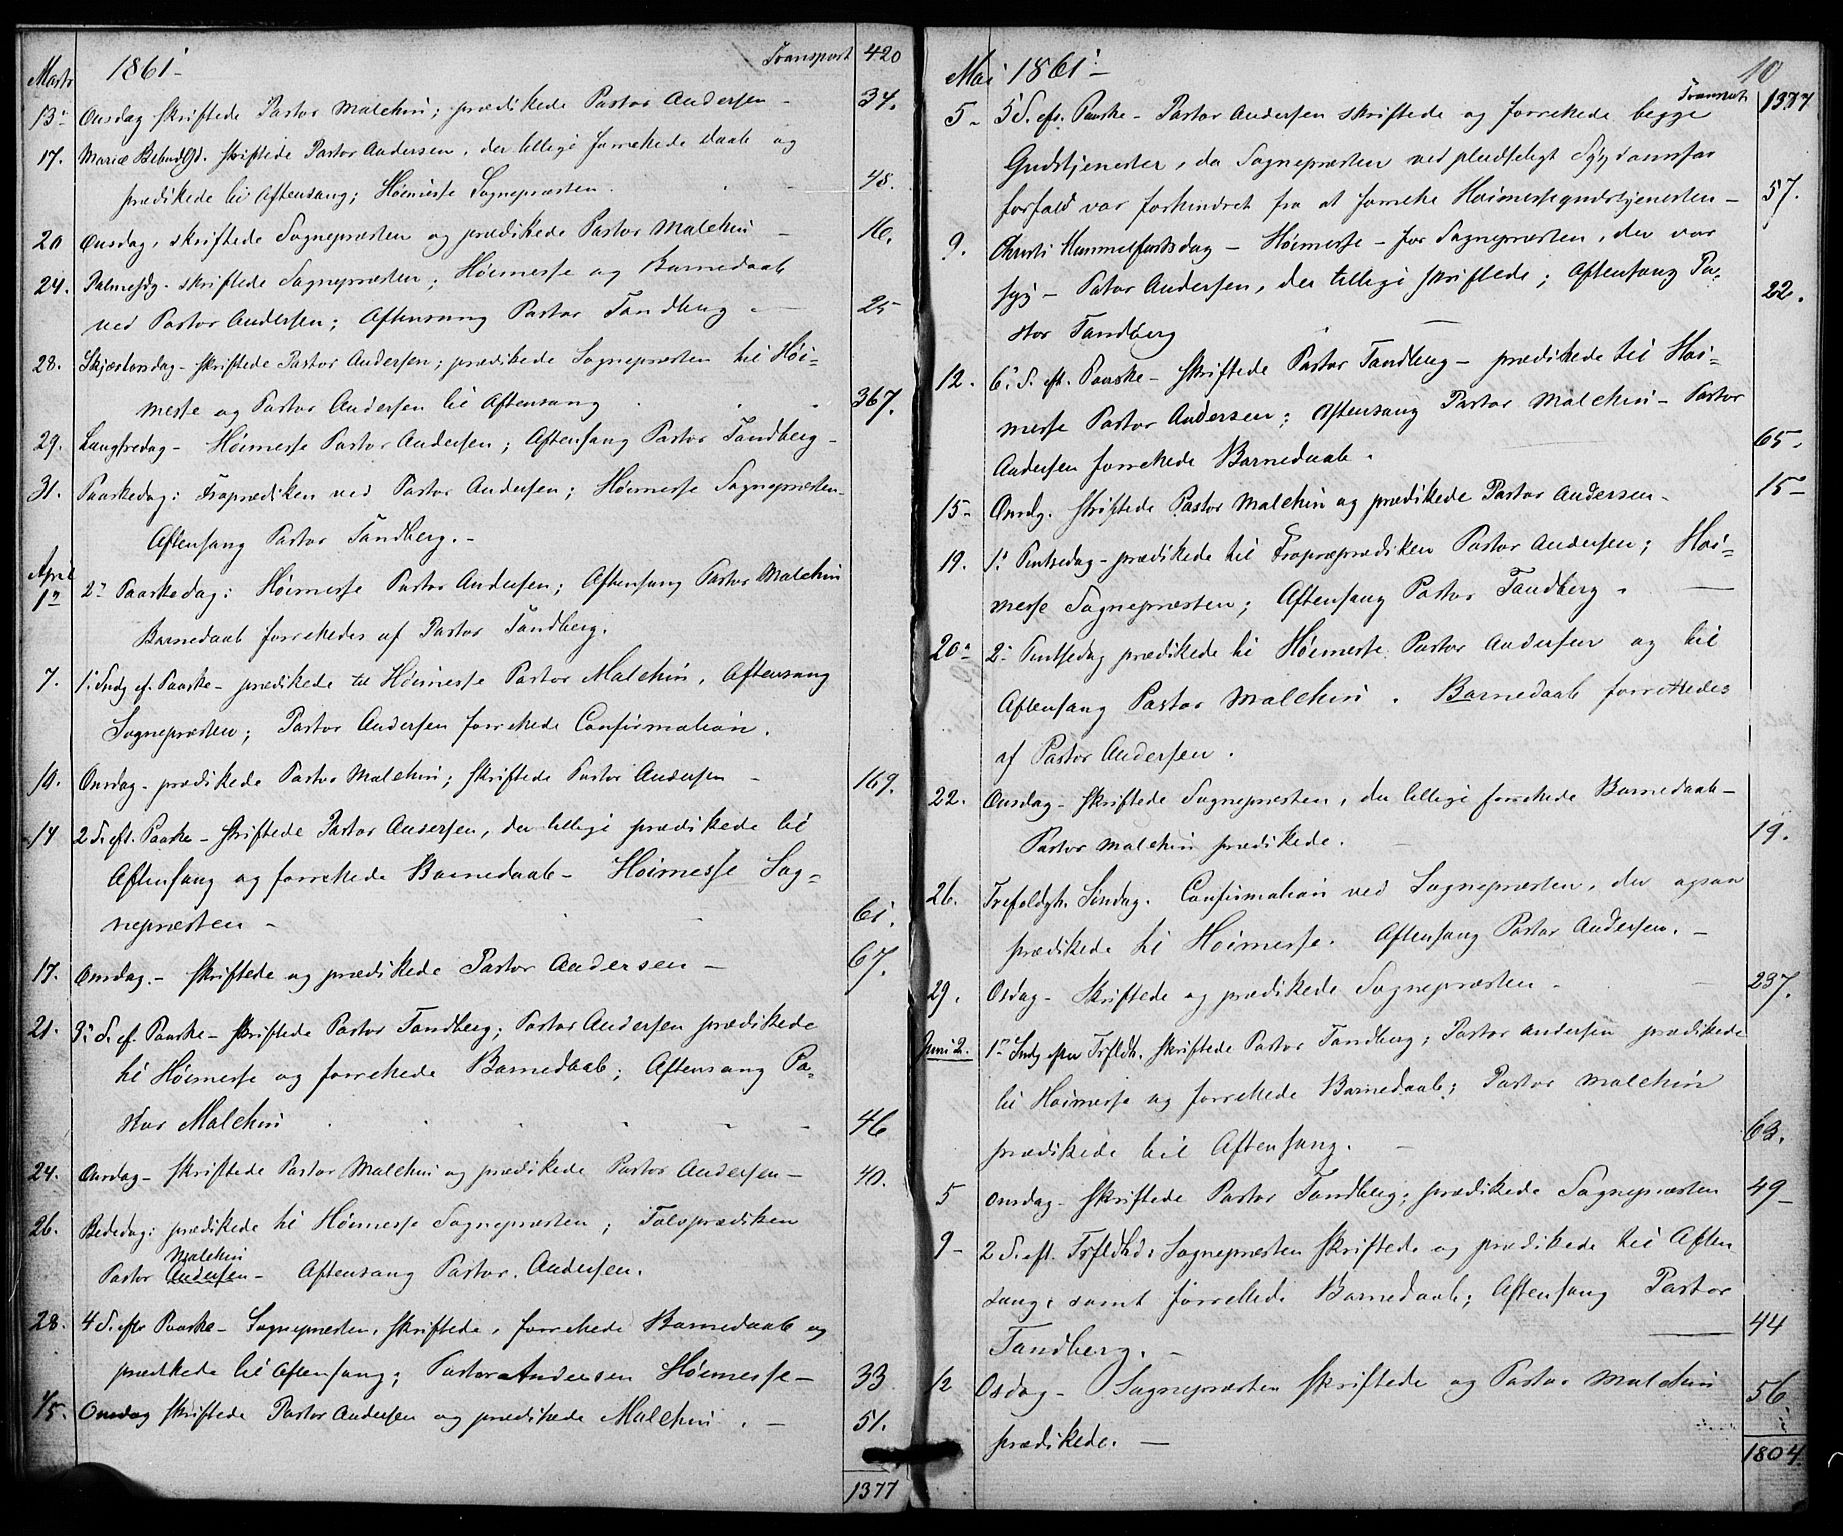 Marts 1861 - Transport 420
13 Onsdag skriftede Pastor Malchin; prædikede Pastor Andersen - 34.
17. Mariæ Bebudlsd. skriftede Pastor Andersen, der tillige forrettede Daab og
prædikede til Aftensang; Høimesse Sognepræsten. - 48.
20 Onsdag, skriftede Sognepræsten og prædikede Pastor Malchin - 16.
24. Palmesdg - skriftede Sognepræsten; Høimesse og Barnedaab
ved Pastor Andersen; Aftensang Pastor Tandberg - 25
28. Skjærtorsdag - skriftede Pastor Andersen; prædikede Sognepræsten til Høi-
messe og Pastor Andersen til Aftensang 367.
29. Langfredag - Høimesse Pastor Andersen; Aftensang Pastor Tandberg -
31. Paaskedag: Froprædiken ved Pastor Andersen; Høimesse Sognepræsten -
Aftensang Pastor Tandberg. -
April
1 2 Paaskedag: Høimesse Pastor Andersen; Aftensang Pastor Malchin
Barnedaab forrettedes af Pastor Tandberg.
7. 1 Sndg ef. Paaske - prædikede til Høimesse Pastor Malchin, Aftensang
Sognepræsten; Pastor Andersen forrettede Confirmation.
10. Onsdag - prædikede Pastor Malchin; skriftede Pastor Andersen - 169.
14 2 S. eft. Paaske - skriftede Pastor Andersen, der tillige prædikede til
Aftensang og forrettede Barnedaab - Høimesse Sog-
nepræsten - 61.
17. Onsdag. - skriftede og prædikede Pastor Andersen - 67.
21. 3 S. ef. Paaske - skriftede Pastor Tandberg; Pastor Andersen prædikede
til Høimesse og forrettede Barnedaab; Aftensang Pa-
stor Malchin - 46
24. Onsdag - skriftede Pastor Malchin og prædikede Pastor Andersen - 40.
26. Bededag: prædikede til Høimesse Sognepræsten; Tolvprædiken
Malchin
Pastor Andersen - Aftensang Pastor Andersen.
28. 4 S. efter Paaske - Sognepræsten, skriftede, forrettede Barnedaab og
prædikede til Aftensang; Pastor Andersen Høimesse - 33
1/5. Onsdag skriftede Pastor Andersen og prædikede Malchin. - 51.
1377
10
Mai 1861 - Transport 1377
5 - 5 S. eft. Paaske - Pastor Andersen skriftede og forrettede begge
Gudstjenester, da Sognepræsten ved pludseligt Sygdomsfor
forfald var forhindret fra at forrette Høimessegudstjenesten - 57.
9. Christi Himmelfartsdag - Høimesse - for Sognepræsten, der var
syg - Pator Andersen, der tillige skriftede; Aftensang Pa-
stor Tandberg - 22.
12. 6 S. eft. Paaske - skriftede Pastor Tandberg - prædikede til Høi-
messe Pastor Andersen; Aftensang Pastor Malchin - Pastor
Andersen forrettede Barnedaab. 65.
15 - Onsdg. skriftede Pastor Malchin og prædikede Pastor Andersen - 15 -
19. 1 Pintsedag - prædikede til Fropræprædiken Pastor Andersen; Høi-
messe Sognepræsten; Aftensang Pastor Tandberg. -
20 2 Pintsedag prædikede til Høimesse Pastor Andersen og til
Aftensang Pastor Malchin. Barnedaab forrettedes
af Pastor Andersen.
22. Onsdag - skriftede Sognepræsten, der tillige forrettede Barnedaab -
Pastor Malchin prædikede. - 19.
26. Trefoldgh. Søndag. Confirmation ved Sognepræsten, der ogsaa
prædikede til Høimesse. Aftensang Pastor Andersen. -
29. Osdag - Skriftede og prædikede Sognepræsten - 237.
Juni 2. 1 Sndg efter Trfldh. skriftede Pastor Tandberg; Pastor Andersen prædikede
til Høimesse og forrettede Barnedaab; Pastor Malchin
prædikede til Aftensang. - 63.
5 Onsdag - skriftede Pastor Tandberg; prædikede Sognepræsten 49 -
9 - 2 S. eft. Trfldhd. Sognepræsten skriftede og prædikede til Aften
sang, samt forrettede Barnedaab; Aftensang Pastor
Tandberg. - 44
12 Osdag - Sognepræsten skriftede og Pastor Malchin
prædikede. - 56.
1804.